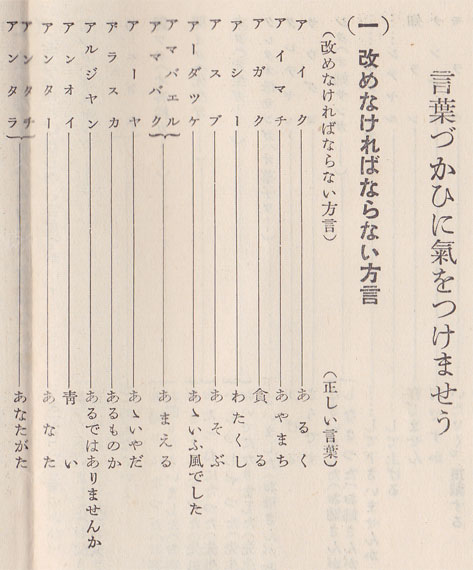 言葉づかひに氣をつけませう
(一)改めなければならない方言
(改めなければならない方言) (正しい言葉)
アイク──あるく
アイマチ──あやまち
アガク──貪る
アシー──わたくし
アスブ──あそぶ
アーダッケ──あゝいふ風でした
アマバエル
アマバク──あまえる
アーヤ──あゝいやだ
アラスカ──あるものか
アルジヤン──あるではありませんか
アンオイ──靑い
アンター──あなた
アンタチ
アンタラ──あなたがた